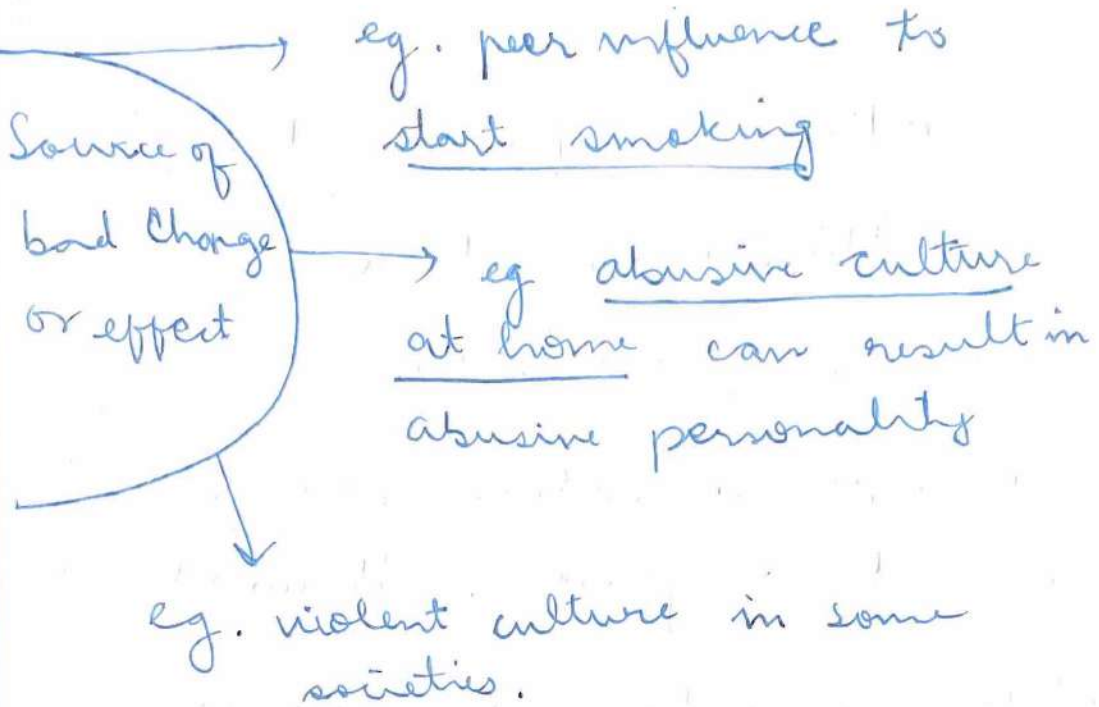 Source of
bad Change
or effect
eg. peer influence to
start smoking
eg abusive culture
at home can result in
abusive personality
eg. violent culture in some
societies.